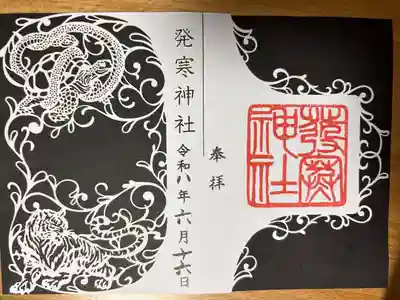 奉拝
発寒神社
令和八年六月十六日
発寒神社